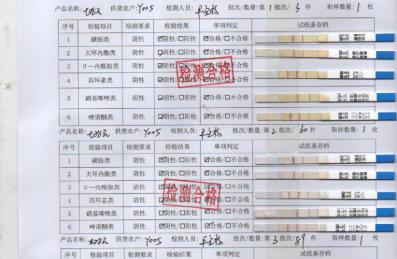 产品名称: 供货农户:Y005 检测人员: 批次/数量:第1批次/3件 取样数量:1枚
序号 检验项目 检测要求 检验结果 单项判定 试纸条存档
1 磺胺类 阴性 ☑阴性/□阳性 ☑合格/□不合格
2 大环内酯类 阴性 ☑阴性/□阳性 ☑合格/□不合格
3 β-内酰胺类 阴性 ☑阴性/□阳性 ☑合格/□不合格
4 四环素类 阴性 ☑阴性/□阳性 ☑合格/□不合格
5 硝基咪唑类 阴性 ☑阴性/□阳性 ☑合格/□不合格
6 喹诺酮类 阴性 ☑阴性/□阳性 ☑合格/□不合格
检测合格
产品名称: 供货农户:Y005 检测人员: 批次/数量:第2批次/60件 取样数量:1枚
序号 检验项目 检测要求 检验结果 单项判定 试纸条存档
1 磺胺类 阴性 ☑阴性/□阳性 ☑合格/□不合格
2 大环内酯类 阴性 ☑阴性/□阳性 ☑合格/□不合格
3 β-内酰胺类 阴性 ☑阴性/□阳性 ☑合格/□不合格
4 四环素类 阴性 ☑阴性/□阳性 ☑合格/□不合格
5 硝基咪唑类 阴性 ☑阴性/□阳性 ☑合格/□不合格
6 喹诺酮类 阴性 ☑阴性/□阳性 ☑合格/□不合格
检测合格
产品名称: 供货农户:Y005 检测人员: 批次/数量:第3批次/89件 取样数量:1枚
序号 检验项目 检测要求 检验结果 单项判定 试纸条存档